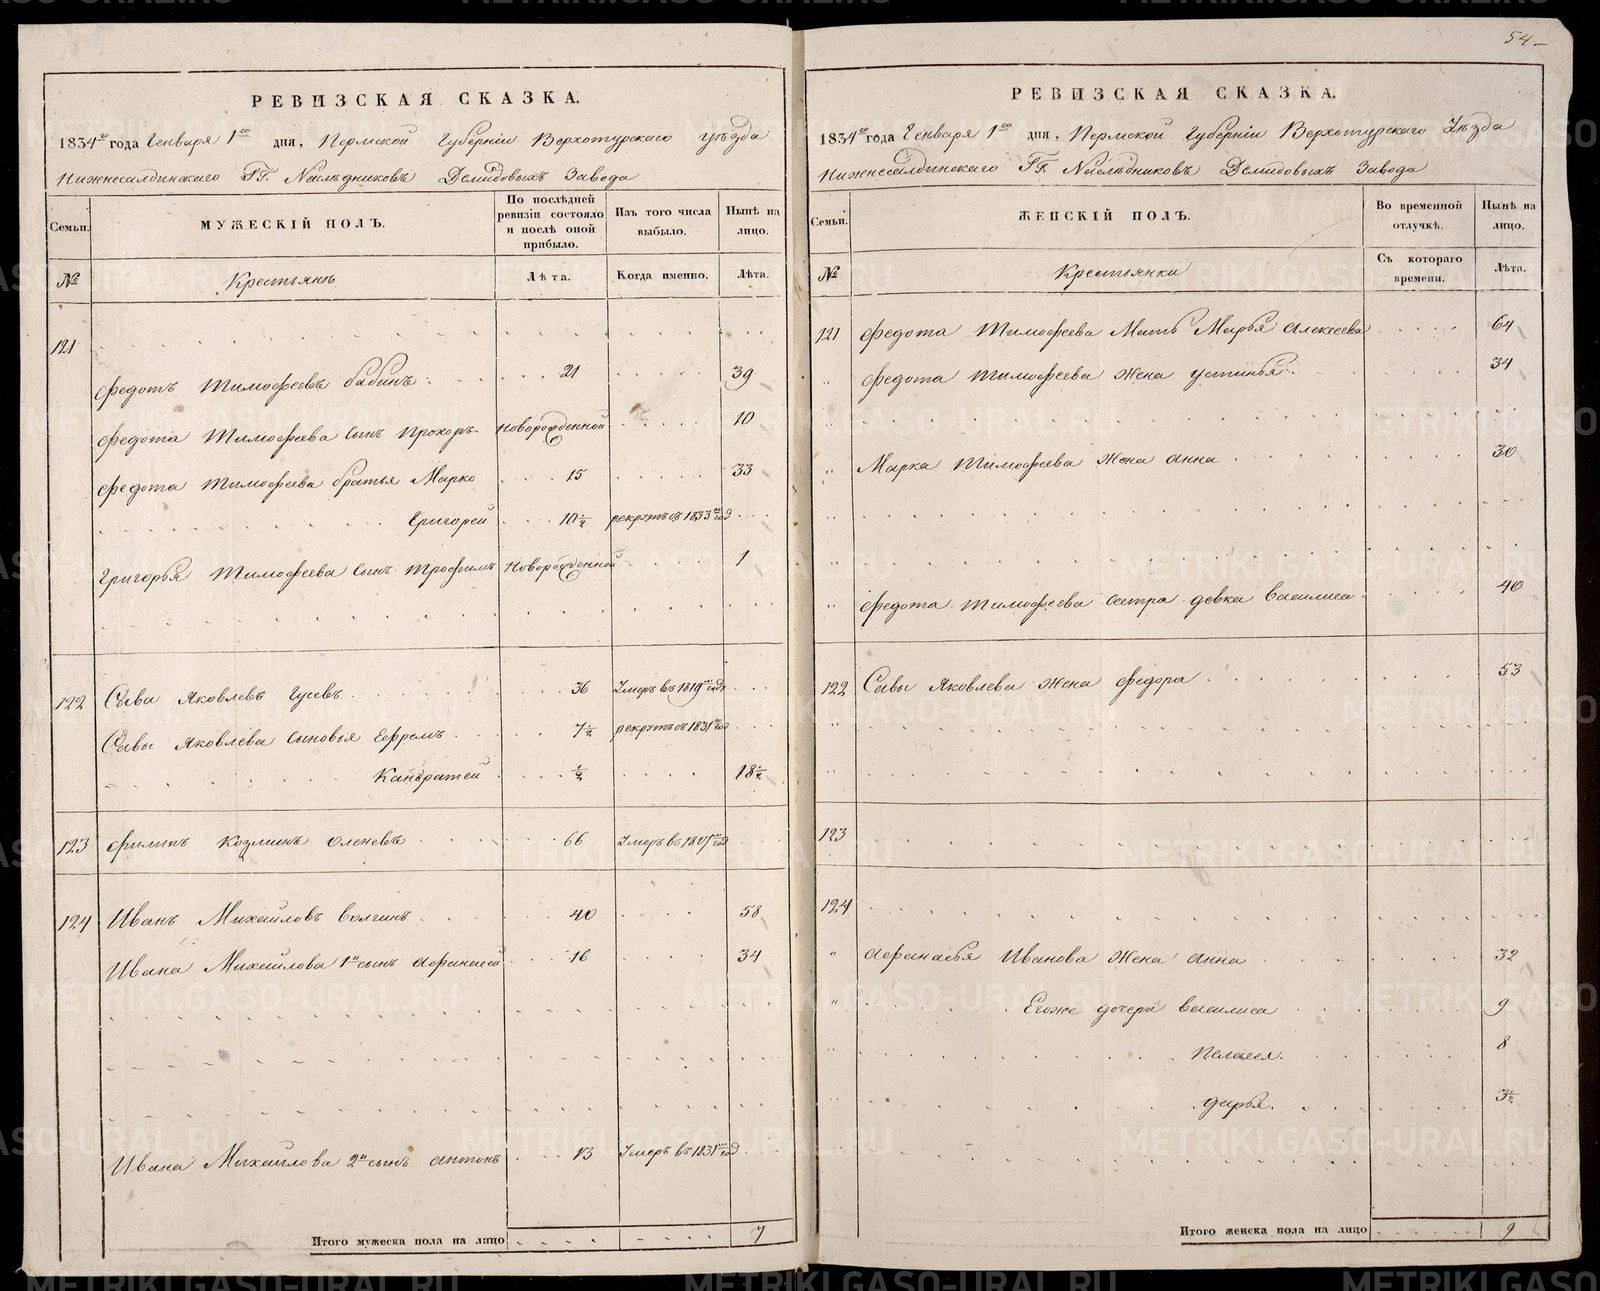 54
РЕВИЗСКАЯ СКАЗКА.
1834го года Генваря 1го дня, Пермской Губернiи Верхотурскаго уѣзда
Нижнесалдинскаго ГГ. Наслѣдниковъ Демидовыхъ Завода
Семьи.
МУЖЕСКIЙ ПОЛЪ.
По послѣдней ревизiи состояло и послѣ оной прибыло.
Изъ того числа выбыло.
Нынѣ на лицо.
№
Крестьянъ
Лѣта.
Когда именно.
Лѣта.
121
Федотъ Тимофеевъ Бабинъ 21 39
Федота Тимофеева сынъ Прохоръ новорожденной 10
Федота Тимофеева братья Марко 15 33
Григорей 10½ рекрутъ въ 1833м год
Григорья Тимофеева сынъ Трофимъ новорожденной 1
122 Сава Яковлевъ Гусевъ 36 Умеръ въ 1819м годѣ
Савы Яковлева сыновья Ефремъ 7½ рекрутъ въ 1831м год
Кандратей ½ 18½
123 Филипъ Козминъ Оленевъ 66 Умеръ въ 18 год
124 Иванъ Михайловъ Волгинъ 40 58
Ивана Михайлова 1й сынъ Афанасей 16 34
Ивана Михайлова 2й сынъ Антонъ 13 Умеръ въ 1831м год
Итого мужеска пола на лицо 7
РЕВИЗСКАЯ СКАЗКА.
1834го года Генваря 1го дня, Пермской Губернiи Верхотурскаго Уѣзда
Нижнесалдинскаго ГГ. Наслѣдниковъ Демидовыхъ Завода
Семьи.
ЖЕНСКIЙ ПОЛЪ.
Во временной отлучкѣ.
Нынѣ на лицо.
№
Крестьянки
Съ котораго времени.
Лѣта.
121 Федота Тимофеева Мать Марья Алексеева 64
Федота Тимофеева жена Устинья 34
Марка Тимофеева жена Анна 30
Федота Тимофеева сестра девка Василиса 40
122 Савы Яковлева жена Федора 53
123
124
Афанасья Иванова жена Анна 32
Егоже дочери Василиса 9
Пелагея 8
Дарья 3½
Итого женска пола на лицо 9
METRIKI.GASO-URAL.RU